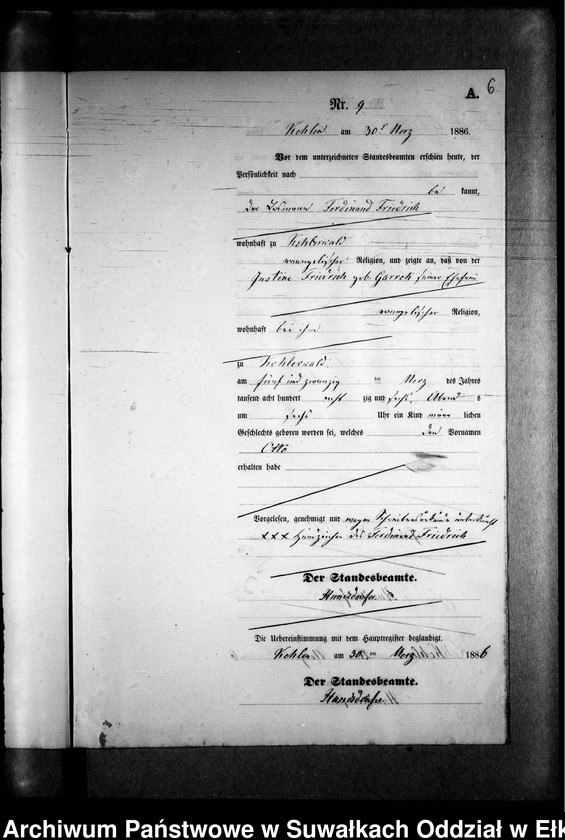 6
A.
Nr. 9
am 30t 1886.
Vor dem unterzeichneten Standesbeamten erschien heute, der
Persönlichkeit nach
be kannt,
der Losmann Ferdinand Friedrich
wohnhaft zu
evangelischer Religion, und zeigte an, daß von der
Justine Friedrich geb. seiner Ehefrau
evangelischer Religion,
wohnhaft bei ihm
zu
am fünf und zwanzig ten des Jahres
tausend acht hundert acht zig und sechs, Abend s
um sechs Uhr ein Kind männ lichen
Geschlechts geboren worden sei, welches den Vornamen
Otto
erhalten habe
Vorgelesen, genehmigt und wegen
XXX Handzeichen des Ferdinand Friedrich
Der Standesbeamte.
Die Uebereinstimmung mit dem Hauptregister beglaubigt.
am 30 ten 1886
Der Standesbeamte.
Archiwum Państwowe w Suwałkach Oddział w Ełk